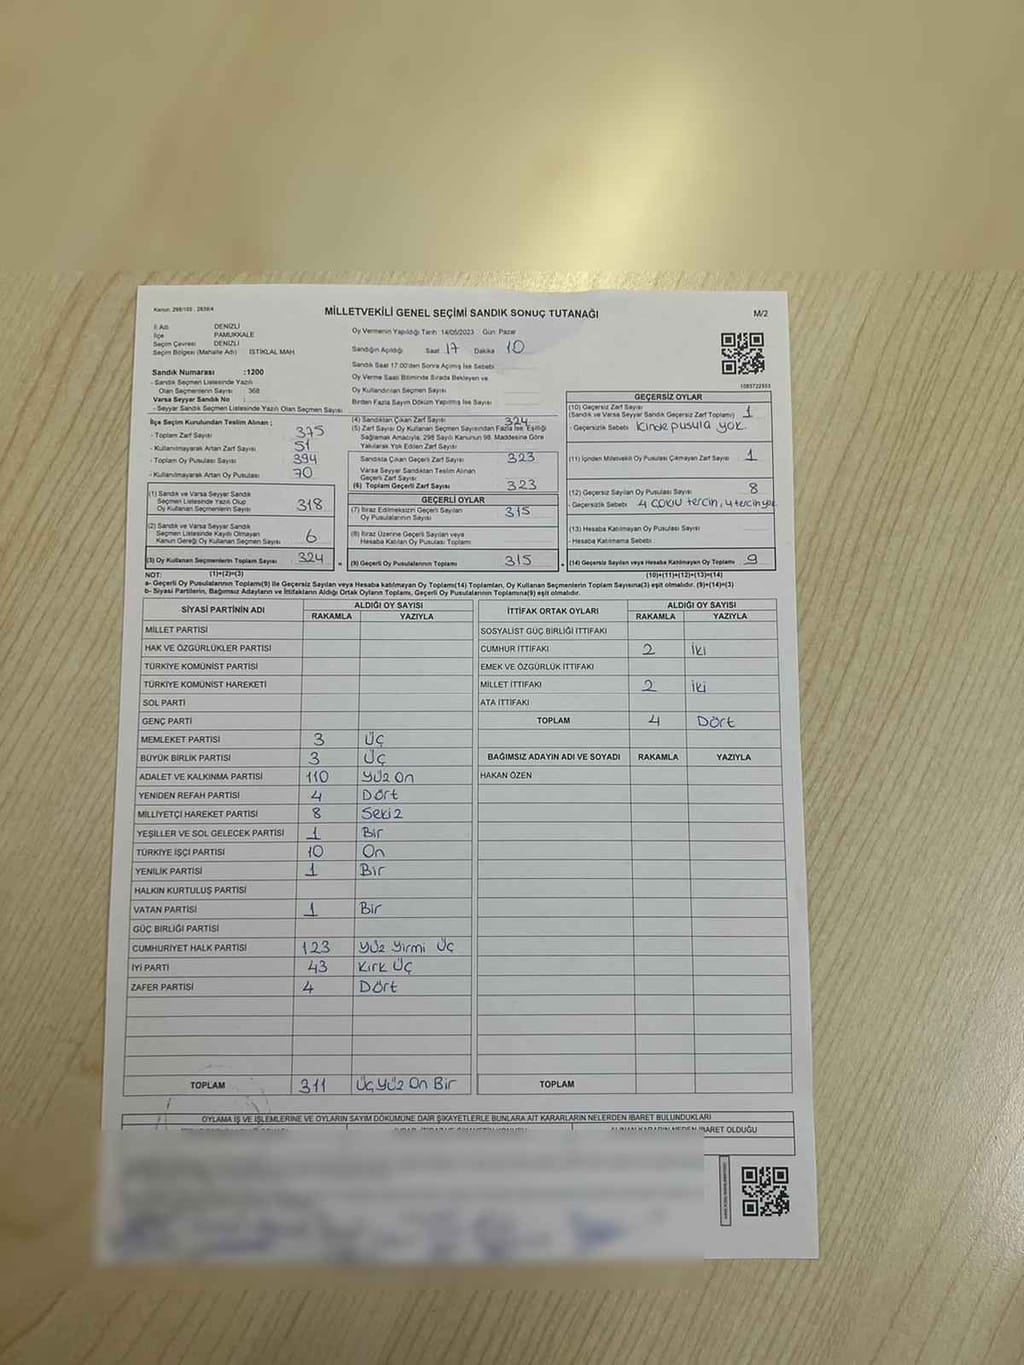 Kanun: 298/105 , 2839/4
MİLLETVEKİLİ GENEL SEÇİMİ SANDIK SONUÇ TUTANAĞI
M/2
İl Adı DENİZLİ
İlçe PAMUKKALE
Seçim Çevresi DENİZLİ
Seçim Bölgesi (Mahalle Adı) İSTİKLAL MAH.
Oy Vermenin Yapıldığı Tarih 14/05/2023 Gün: Pazar
Sandığın Açıldığı Saat 17 Dakika 10
Sandık Saat 17.00'den Sonra Açılmış İse Sebebi
Oy Verme Saati Bitiminde Sırada Bekleyen ve
Oy Kullandırılan Seçmen Sayısı
Birden Fazla Sayım Dökümü Yapılmış İse Sayısı
1085722593
Sandık Numarası :1200
- Sandık Seçmen Listesinde Yazılı
Olan Seçmenlerin Sayısı : 368
Varsa Seyyar Sandık No :
- Seyyar Sandık Seçmen Listesinde Yazılı Olan Seçmen Sayısı :
İlçe Seçim Kurulundan Teslim Alınan ;
- Toplam Zarf Sayısı 375
- Kullanılmayarak Artan Zarf Sayısı 51
- Toplam Oy Pusulası Sayısı 394
- Kullanılmayarak Artan Oy Pusulası 70
(1) Sandık ve Varsa Seyyar Sandık
Seçmen Listesinde Yazılı Olup
Oy Kullanan Seçmenlerin Sayısı 318
(2) Sandık ve Varsa Seyyar Sandık
Seçmen Listesinde Kayıtlı Olmayan
Kanun Gereği Oy Kullanan Seçmen Sayısı 6
(3) Oy Kullanan Seçmenlerin Toplam Sayısı 324
(1)+(2)=(3)
(4) Sandıktan Çıkan Zarf Sayısı 324
(5) Zarf Sayısı Oy Kullanan Seçmen Sayısından Fazla İse, Eşitliği
Sağlamak Amacıyla, 298 Sayılı Kanunun 98. Maddesine Göre
Yakılarak Yok Edilen Zarf Sayısı
Sandıkta Çıkan Geçerli Zarf Sayısı 323
Varsa Seyyar Sandıktan Teslim Alınan
Geçerli Zarf Sayısı
(6) Toplam Geçerli Zarf Sayısı 323
GEÇERLİ OYLAR
(7) İtiraz Edilmeksizin Geçerli Sayılan
Oy Pusulalarının Sayısı 315
(8) İtiraz Üzerine Geçerli Sayılan veya
Hesaba Katılan Oy Pusulası Toplamı
= (9) Geçerli Oy Pusulalarının Toplamı 315
GEÇERSİZ OYLAR
(10) Geçersiz Zarf Sayısı
(Sandık ve Varsa Seyyar Sandık Geçersiz Zarf Toplamı) 1
- Geçersizlik Sebebi kinde pusula yok.
(11) İçinden Milletvekili Oy Pusulası Çıkmayan Zarf Sayısı 1
(12) Geçersiz Sayılan Oy Pusulası Sayısı 8
- Geçersizlik Sebebi 4 çoklu tercih, 4 tercih yok
(13) Hesaba Katılmayan Oy Pusulası Sayısı
- Hesaba Katılmama Sebebi
+ (14) Geçersiz Sayılan veya Hesaba Katılmayan Oy Toplamı 9
(10)+(11)+(12)+(13)=(14)
NOT:
a- Geçerli Oy Pusulalarının Toplamı(9) ile Geçersiz Sayılan veya Hesaba katılmayan Oy Toplam(14) Toplamları, Oy Kullanan Seçmenlerin Toplam Sayısına(3) eşit olmalıdır. (9)+(14)=(3)
b- Siyasi Partilerin, Bağımsız Adayların ve İttifakların Aldığı Ortak Oyların Toplamı, Geçerli Oy Pusulalarının Toplamına(9) eşit olmalıdır.
SİYASİ PARTİNİN ADI ALDIĞI OY SAYISI
RAKAMLA YAZIYLA
MİLLET PARTİSİ
HAK VE ÖZGÜRLÜKLER PARTİSİ
TÜRKİYE KOMÜNİST PARTİSİ
TÜRKİYE KOMÜNİST HAREKETİ
SOL PARTİ
GENÇ PARTİ
MEMLEKET PARTİSİ 3 Üç
BÜYÜK BİRLİK PARTİSİ 3 Üç
ADALET VE KALKINMA PARTİSİ 110 Yüz On
YENİDEN REFAH PARTİSİ 4 Dört
MİLLİYETÇİ HAREKET PARTİSİ 8 Sekiz
YEŞİLLER VE SOL GELECEK PARTİSİ 1 Bir
TÜRKİYE İŞÇİ PARTİSİ 10 On
YENİLİK PARTİSİ 1 Bir
HALKIN KURTULUŞ PARTİSİ
VATAN PARTİSİ 1 Bir
GÜÇ BİRLİĞİ PARTİSİ
CUMHURİYET HALK PARTİSİ 123 Yüz Yirmi Üç
İYİ PARTİ 43 Kırk Üç
ZAFER PARTİSİ 4 Dört
TOPLAM 311 Üç Yüz On Bir
İTTİFAK ORTAK OYLARI ALDIĞI OY SAYISI
RAKAMLA YAZIYLA
SOSYALİST GÜÇ BİRLİĞİ İTTİFAKI
CUMHUR İTTİFAKI 2 İki
EMEK VE ÖZGÜRLÜK İTTİFAKI
MİLLET İTTİFAKI 2 İki
ATA İTTİFAKI
TOPLAM 4 Dört
BAĞIMSIZ ADAYIN ADI VE SOYADI RAKAMLA YAZIYLA
HAKAN ÖZEN
TOPLAM
OYLAMA İŞ VE İŞLEMLERİNE VE OYLARIN SAYIM DÖKÜMÜNE DAİR ŞİKAYETLERLE BUNLARA AİT KARARLARIN NELERDEN İBARET BULUNDUKLARI
ALINAN KARARIN NEDEN İBARET OLDUĞU